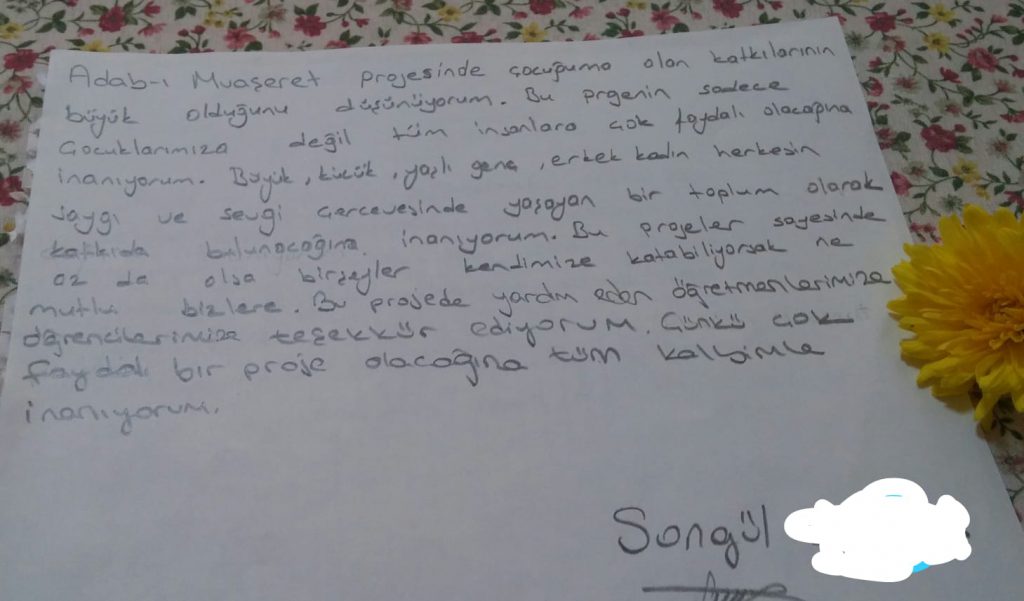 Adab-ı Muaşeret projesinde çocuğuma olan katkılarının
büyük olduğunu düşünüyorum. Bu prgenin sadece
Çocuklarımıza değil tüm insanlara çok faydalı olacağına
inanıyorum. Büyük, küçük, yaşlı genç, erkek kadın herkesin
saygı ve sevgi çerçevesinde yaşayan bir toplum olarak
katkıda bulunacağına inanıyorum. Bu projeler sayesinde
az da olsa birşeyler kendimize katabiliyorsak ne
mutlu bizlere. Bu projede yardım eden öğretmenlerimize
öğrencilerimize teşekkür ediyorum. Çünkü çok
faydalı bir proje olacağına tüm kalbimle
inanıyorum.
Songül